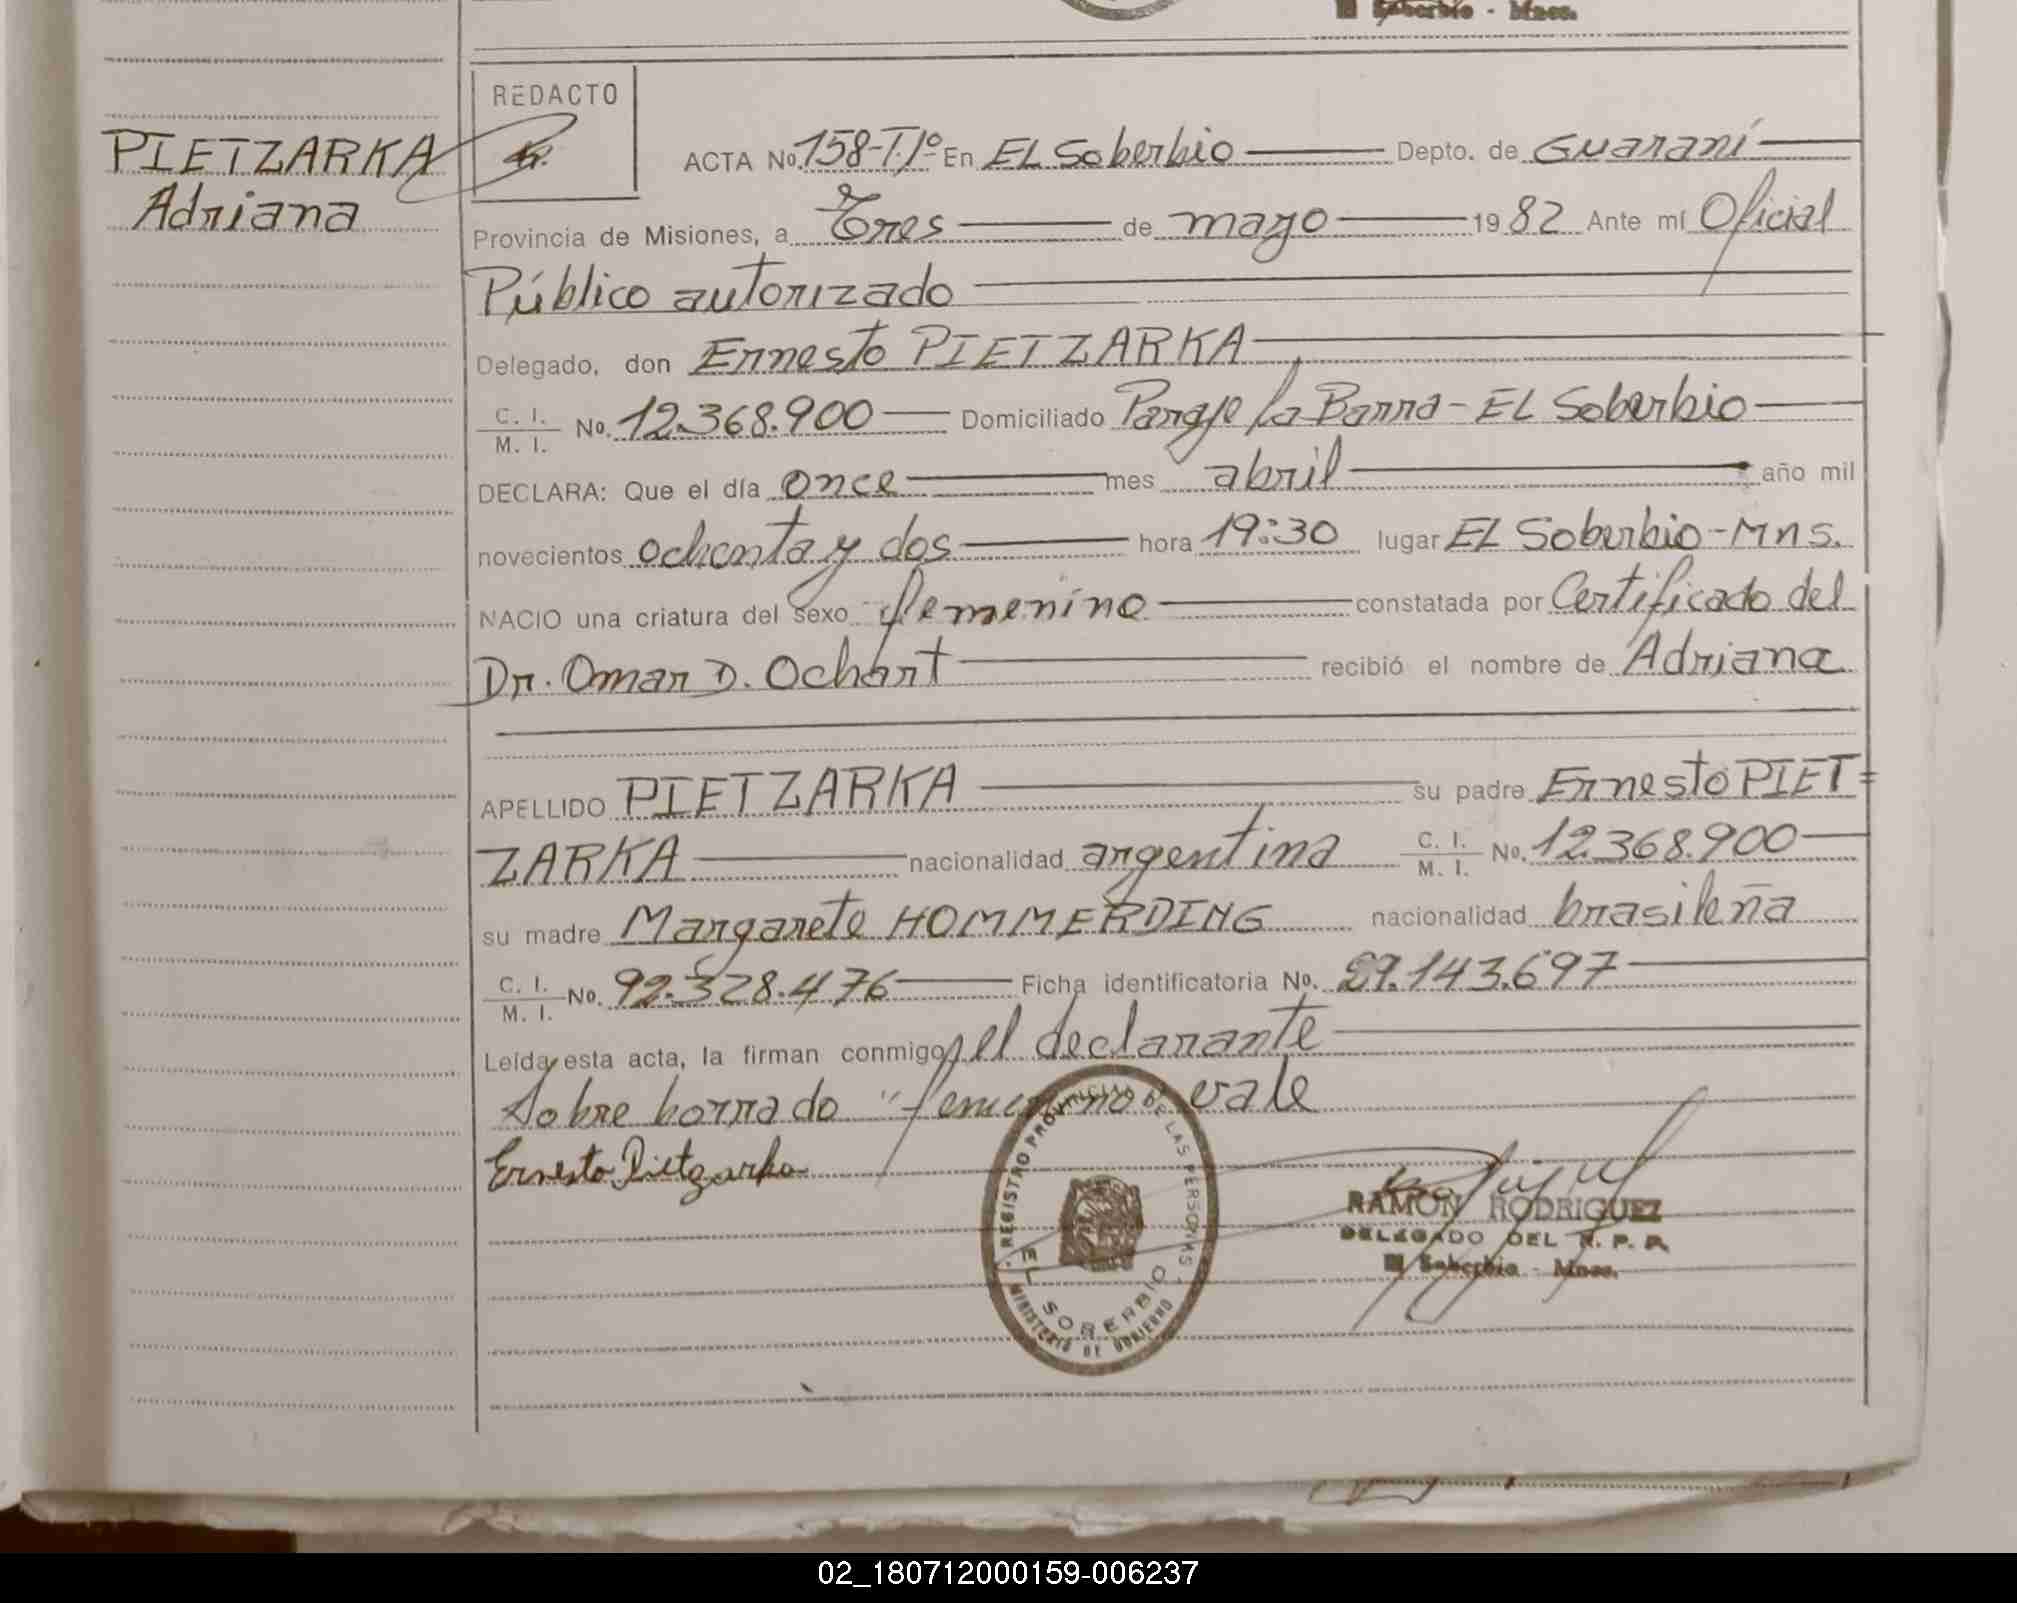 Soberbio - Mnes.
REDACTO
PIETZARKA
Adriana
ACTA No. 158-T.1º En EL Soberbio Depto. de Guaraní
Provincia de Misiones, a Tres de mayo 1982 Ante mí Oficial
Público autorizado
Delegado, don Ernesto PIETZARKA
C. I.
M. I. No. 12.368.900 Domiciliado Paraje La Barra - EL Soberbio
DECLARA: Que el día once mes abril año mil
novecientos ochenta y dos hora 19:30 lugar EL Soberbio - Mns.
NACIO una criatura del sexo femenino constatada por Certificado del
Dr. Omar D. Ochart recibió el nombre de Adriana
APELLIDO PIETZARKA su padre Ernesto PIET=
ZARKA nacionalidad argentina C. I. M. I. No. 12.368.900
su madre Margarete HOMMERDING nacionalidad brasileña
C. I.
M. I. No. 92.328.476 Ficha identificatoria No. 29.143.697
Leída esta acta, la firman conmigo, el declarante
Sobre borrado "femenino" vale
Ernesto Pietzarka
REGISTRO PROVINCIAL DE LAS PERSONAS
EL SOBERBIO
MINISTERIO DE GOBIERNO
RAMON RODRIGUEZ
DELEGADO DEL R. P. P.
El Soberbio - Mnes.
02_180712000159-006237